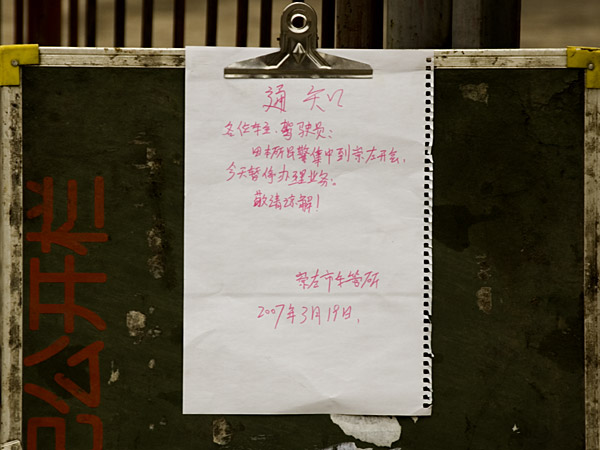 通知
各位车主、驾驶员:
因本所民警集中到崇左开会,
今天暂停办理业务。
敬请谅解!
崇左市车管所
2007年3月19日.
公开栏